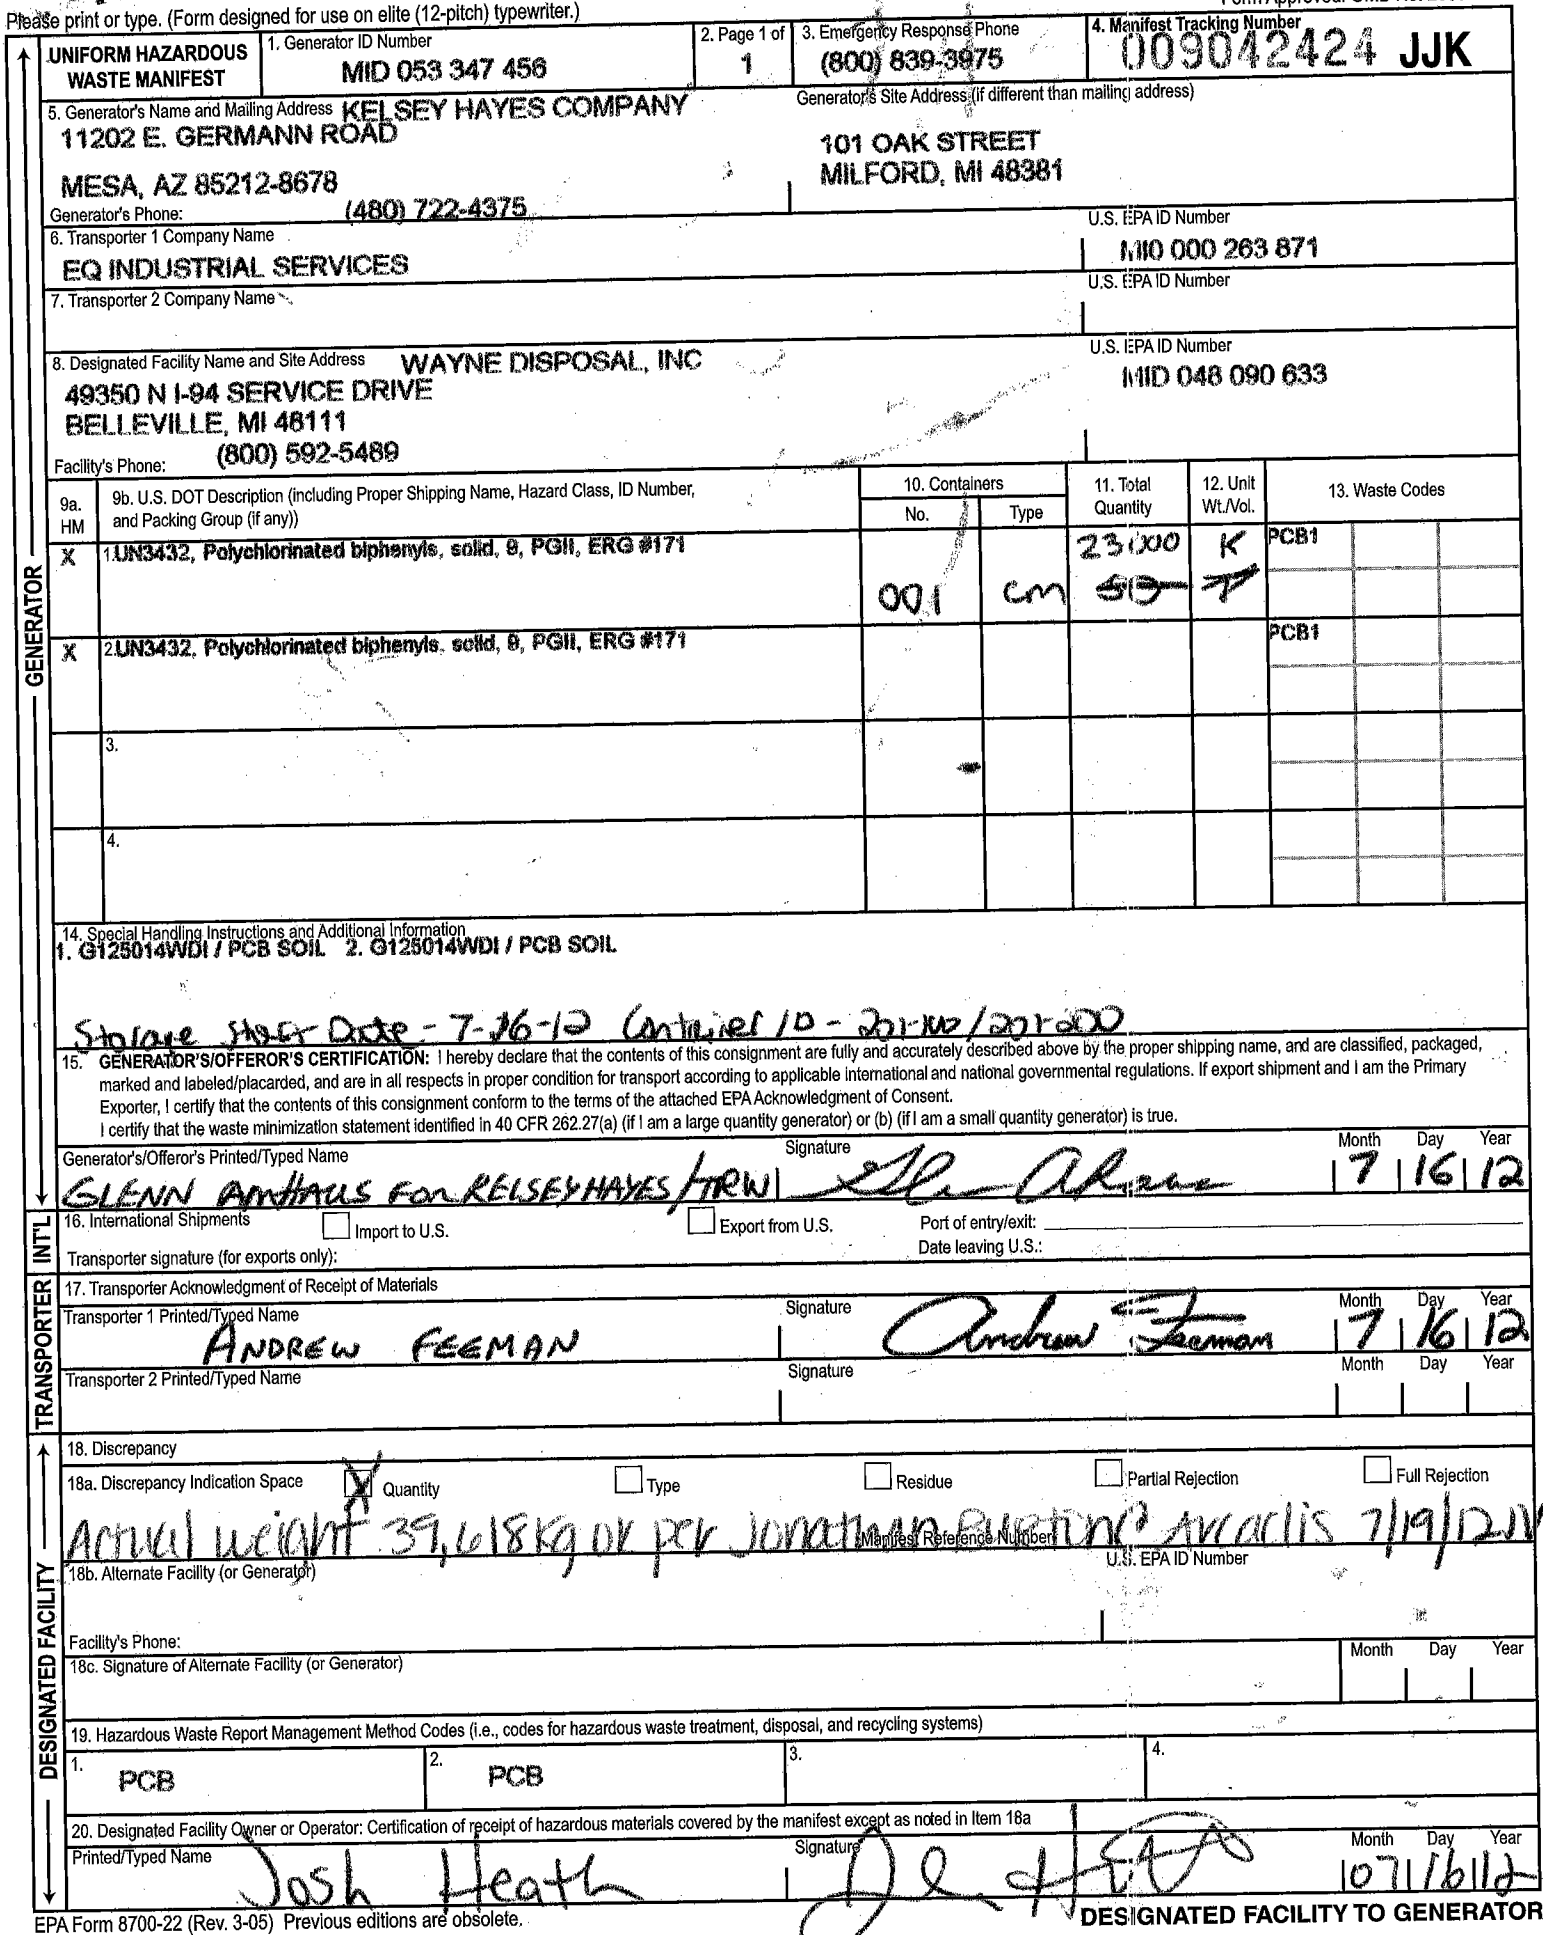 Please print or type. (Form designed for use on elite (12-pitch) typewriter.)
UNIFORM HAZARDOUS
WASTE MANIFEST
1. Generator ID Number
MID 053 347 456
2. Page 1 of
1
3. Emergency Response Phone
(800) 839-3975
4. Manifest Tracking Number
009042424 JJK
5. Generator's Name and Mailing Address KELSEY HAYES COMPANY
11202 E. GERMANN ROAD
MESA, AZ 85212-8678
Generator's Phone: (480) 722-4375
Generator's Site Address (if different than mailing address)
101 OAK STREET
MILFORD, MI 48381
6. Transporter 1 Company Name
EQ INDUSTRIAL SERVICES
U.S. EPA ID Number
MI0 000 263 871
7. Transporter 2 Company Name
U.S. EPA ID Number
8. Designated Facility Name and Site Address WAYNE DISPOSAL, INC
49350 N I-94 SERVICE DRIVE
BELLEVILLE, MI 48111
Facility's Phone: (800) 592-5489
U.S. EPA ID Number
MID 048 090 633
9a.
HM
9b. U.S. DOT Description (including Proper Shipping Name, Hazard Class, ID Number,
and Packing Group (if any))
10. Containers
No.
Type
11. Total
Quantity
12. Unit
Wt./Vol.
13. Waste Codes
X
1.UN3432, Polychlorinated biphenyls, solid, 9, PGII, ERG #171
001
cm
23000
K
PCB1
X
2.UN3432, Polychlorinated biphenyls, solid, 9, PGII, ERG #171
PCB1
3.
4.
14. Special Handling Instructions and Additional Information
1. G125014WDI / PCB SOIL 2. G125014WDI / PCB SOIL
Storage Start Date - 7-16-12 Container ID -
15. GENERATOR'S/OFFEROR'S CERTIFICATION: I hereby declare that the contents of this consignment are fully and accurately described above by the proper shipping name, and are classified, packaged,
marked and labeled/placarded, and are in all respects in proper condition for transport according to applicable international and national governmental regulations. If export shipment and I am the Primary
Exporter, I certify that the contents of this consignment conform to the terms of the attached EPA Acknowledgment of Consent.
I certify that the waste minimization statement identified in 40 CFR 262.27(a) (if I am a large quantity generator) or (b) (if I am a small quantity generator) is true.
Generator's/Offeror's Printed/Typed Name
GLENN AMHAUS FOR KELSEY HAYES/TRW
Signature
Month Day Year
7 16 12
16. International Shipments
Import to U.S.
Export from U.S.
Port of entry/exit:
Date leaving U.S.:
Transporter signature (for exports only):
17. Transporter Acknowledgment of Receipt of Materials
Transporter 1 Printed/Typed Name
ANDREW FEEMAN
Signature
Andrew Feeman
Month Day Year
7 16 12
Transporter 2 Printed/Typed Name
Signature
Month Day Year
18. Discrepancy
18a. Discrepancy Indication Space
X Quantity
Type
Residue
Partial Rejection
Full Rejection
Actual weight 39,618kg ok per Jonathan Arcadis 7/19/12
Manifest Reference Number
18b. Alternate Facility (or Generator)
U.S. EPA ID Number
Facility's Phone:
18c. Signature of Alternate Facility (or Generator)
Month Day Year
19. Hazardous Waste Report Management Method Codes (i.e., codes for hazardous waste treatment, disposal, and recycling systems)
1.
PCB
2.
PCB
3.
4.
20. Designated Facility Owner or Operator: Certification of receipt of hazardous materials covered by the manifest except as noted in Item 18a
Printed/Typed Name
Josh Heath
Signature
Month Day Year
07 16 12
EPA Form 8700-22 (Rev. 3-05) Previous editions are obsolete.
DESIGNATED FACILITY TO GENERATOR
GENERATOR
INT'L
TRANSPORTER
DESIGNATED FACILITY